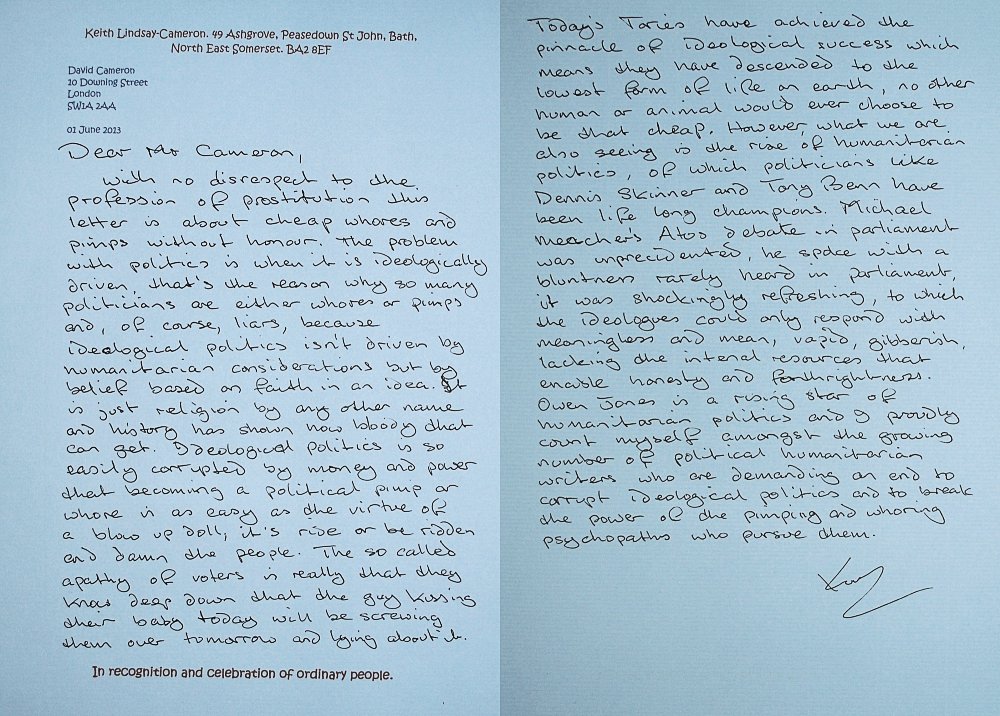 Keith Lindsay-Cameron. 49 Ashgrove, Peasedown St John, Bath,
North East Somerset. BA2 8EF
David Cameron
10 Downing Street
London
SW1A 2AA
01 June 2013
Dear Mr Cameron,
with no disrespect to the
profession of prostitution this
letter is about cheap whores and
pimps without honour. The problem
with politics is when it is ideologically
driven, that's the reason why so many
politicians are either whores or pimps
and, of course, liars, because
ideological politics isn't driven by
humanitarian considerations but by
belief based on faith in an idea. It
is just religion by any other name
and history has shown how bloody that
can get. Ideological politics is so
easily corrupted by money and power
that becoming a political pimp or
whore is as easy as the virtue of
a blow up doll, it's rise or be ridden
and damn the people. The so called
apathy of voters is really that they
know deep down that the guy kissing
their baby today will be screwing
them over tomorrow and lying about it.
In recognition and celebration of ordinary people.
Today's Tories have achieved the
pinnacle of ideological success which
means they have descended to the
lowest form of life on earth, no other
human or animal would ever choose to
be that cheap. However, what we are
also seeing is the rise of humanitarian
politics, of which politicians like
Dennis Skinner and Tony Benn have
been life long champions. Michael
Meacher's Atos debate in parliament
was unprecidented, he spoke with a
bluntness rarely heard in parliament,
it was shockingly refreshing, to which
the ideologues could only respond with
meaningless and mean, vapid, gibberish,
lacking the internal resources that
enable honesty and forthrightness.
Owen Jones is a rising star of
humanitarian politics and I proudly
count myself amongst the growing
number of political humanitarian
writers who are demanding an end to
corrupt ideological politics and to break
the power of the pimping and whoring
psychopaths who pursue them.